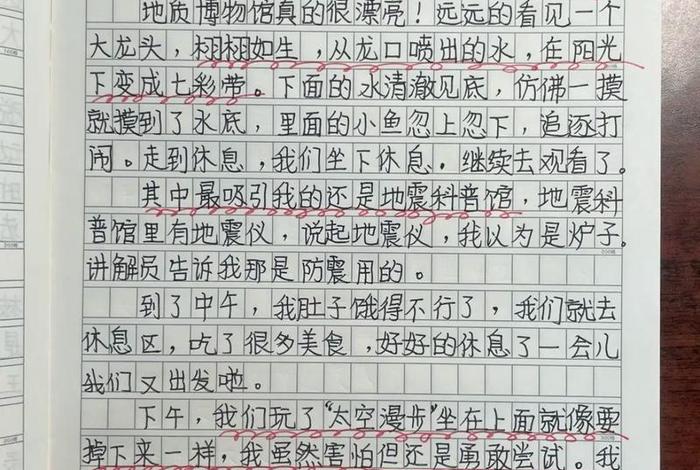 地质博物馆真的很漂亮！远远的看见一个
大龙头，栩栩如生，从龙口喷出的水，在阳光
下变成七彩带。下面的水清澈见底，仿佛一摸
就摸到了水底，里面的小鱼忽上忽下，追逐打
闹。走到休息，我们坐下休息．继续去观看了。
其中最吸引我的还是地震科普馆，地震科
普馆里有地震仪，说起地震仪，我以为是炉子。
讲解员告诉我那是防震用的。
到了中午，我肚子饿得不行了，我们就去
休息区，吃了很多美食，好好的休息了一会儿
我们又出发啦。
下午，我们玩了“太空漫步”坐在上面就像要
掉下来一样，我虽然害怕但还是勇敢尝试。我